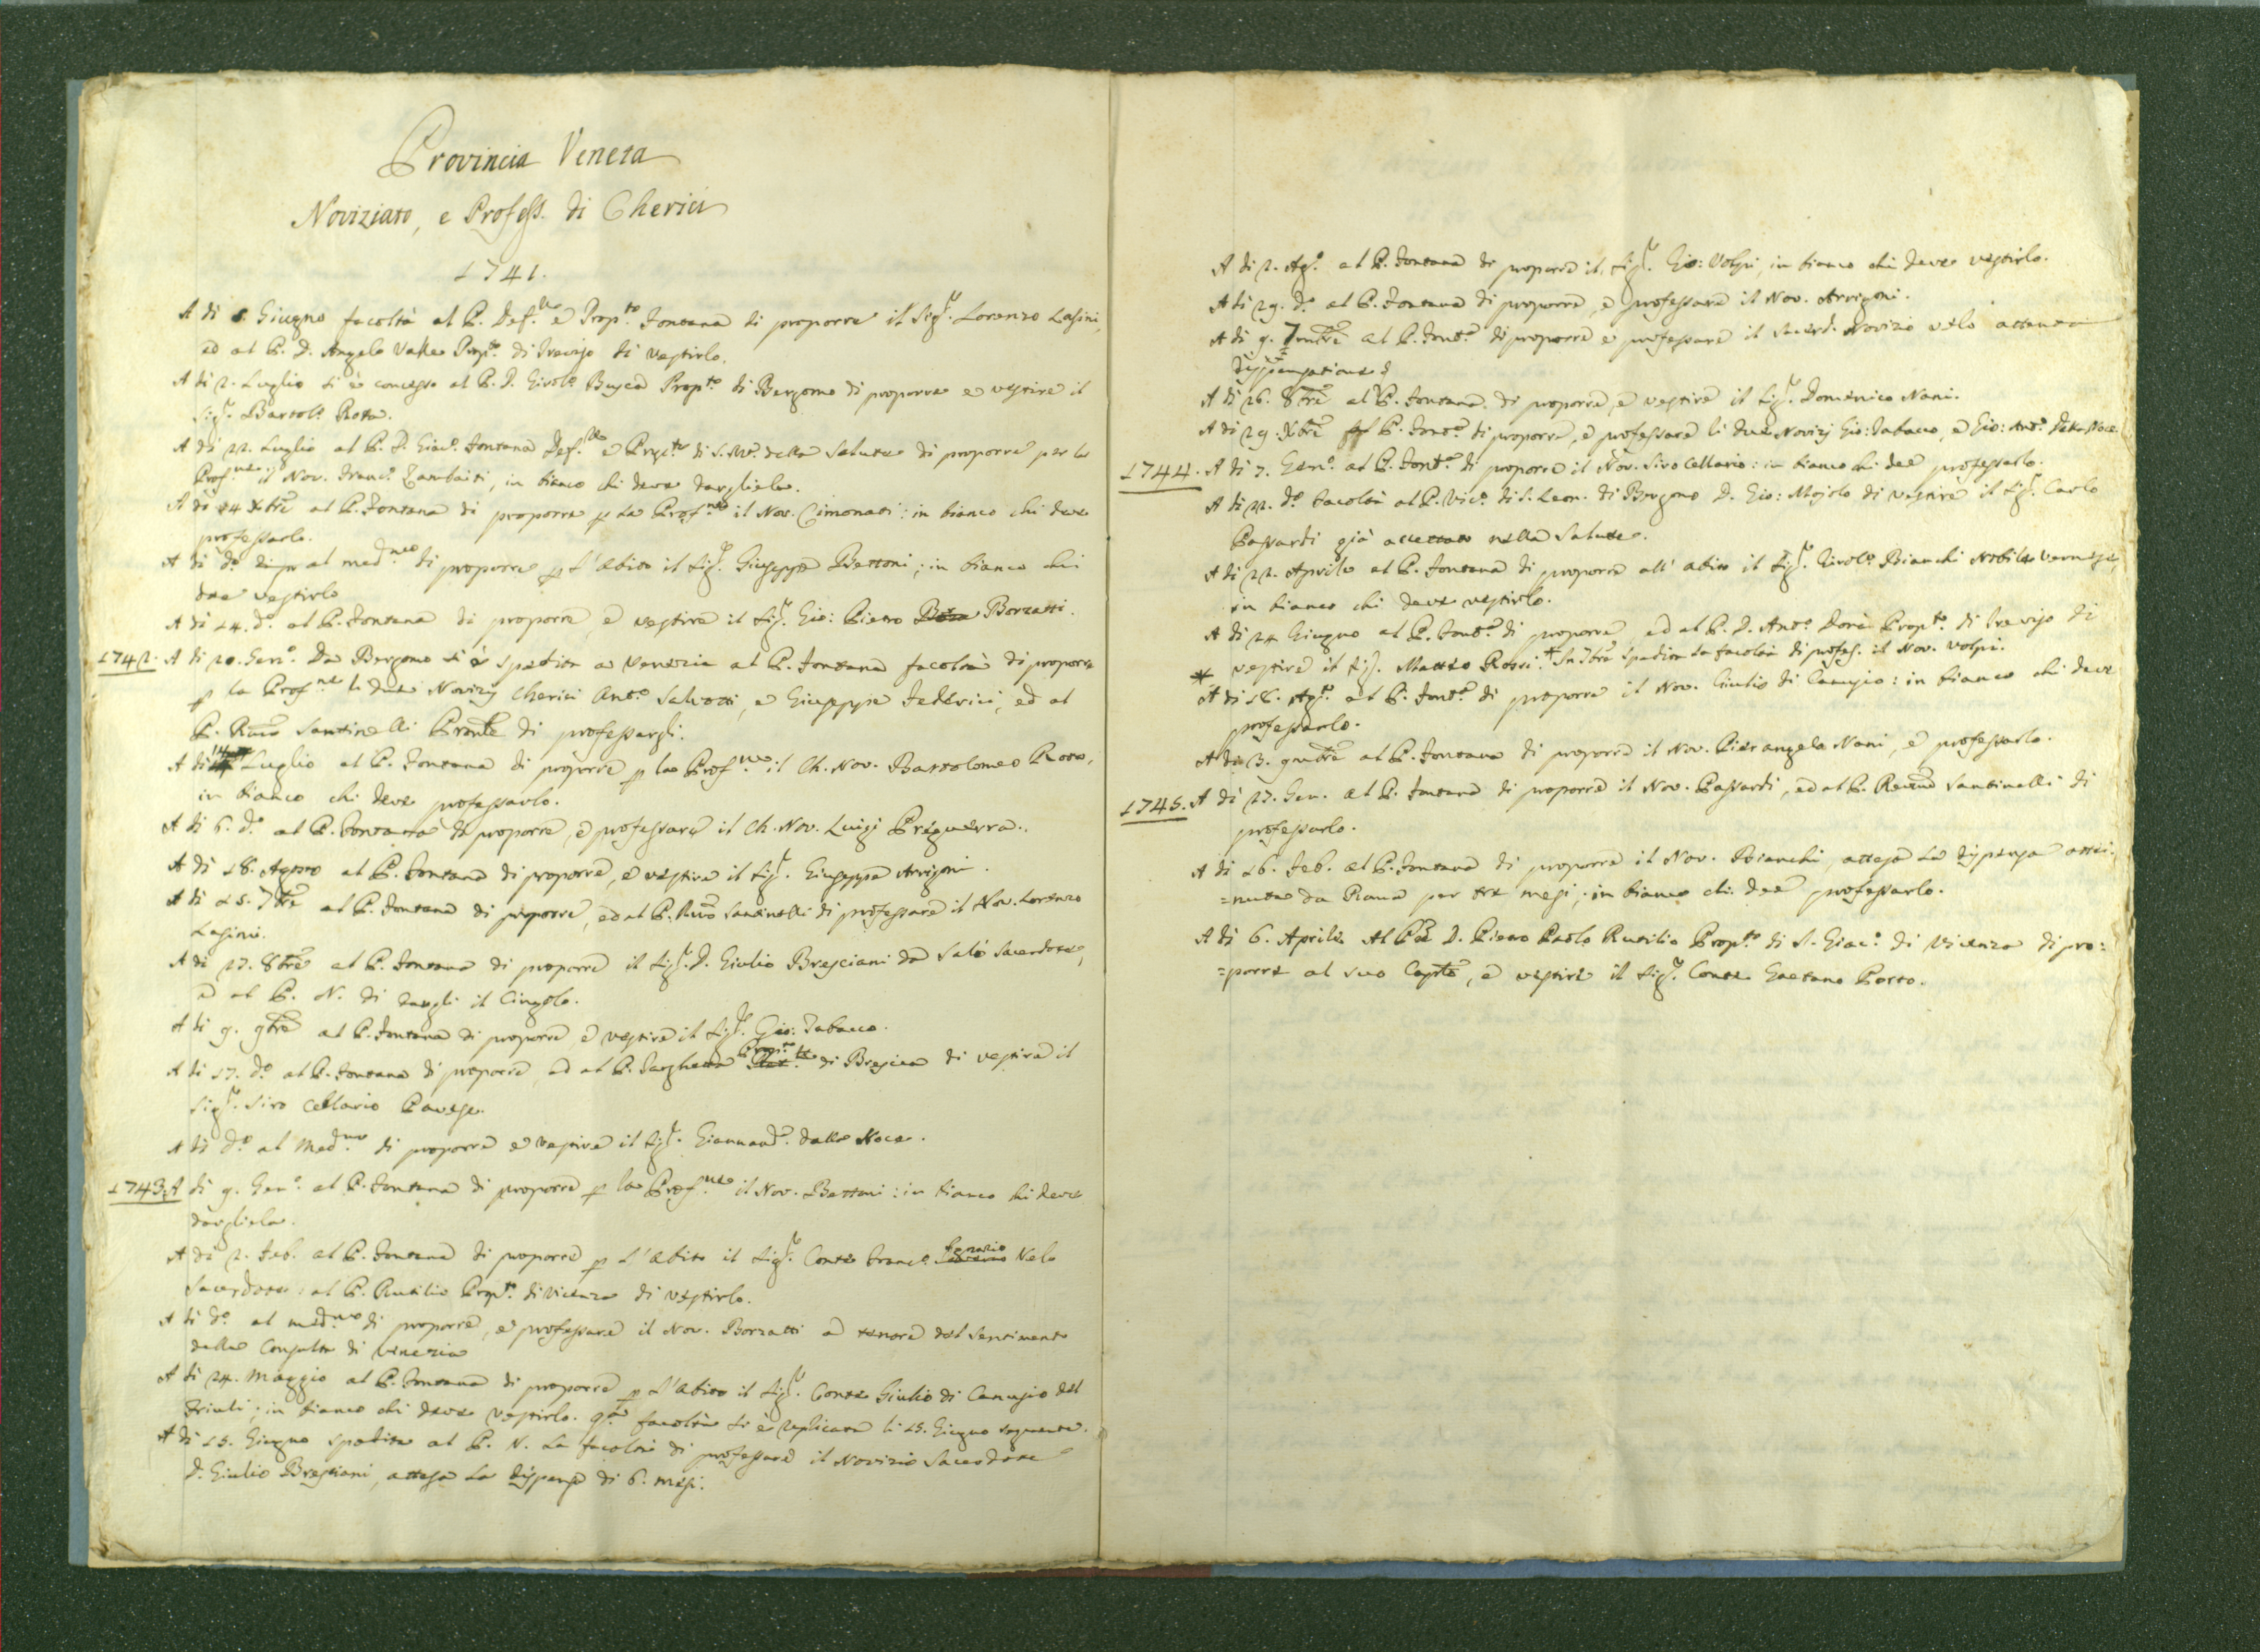 Provincia Veneta
Noviziato, e Profess. di Cherici
1741.
A di Giugno facoltà al P. Def.re e Prop.to Fontana di proporre il Sig.r Lorenzo Lasini,
ed al P. D. Angelo Valle Prop.to di Trevigi di vestirlo.
A di 2. Luglio si è concesso al P. D. Girol.o Busca Prop.to di Bergamo di proporre e vestire il
Sig.r Bartol.o Rota.
A di 22. Luglio al P. D. Giac.o Fontana Def.re e Prop.to di S. M.a della Salute di proporre per la
Prof.ne il Nov. Franc.o Zambaiti, in bianco chi deve dargliela.
A di 24 Xbre al P. Fontana di proporre p la Prof.ne il Nov. Cimonati: in bianco chi deve
professarlo.
A di d.o al med.mo di proporre p l'Abito il Sig.r Giuseppe Bettoni; in bianco chi
dee vestirlo
A di 24. d.o al P. Fontana di proporre, e vestire il Sig.r Gio: Pietro Borzatti.
1742. A di 20. Gen.o Da Bergamo si è spedita a Venezia al P. Fontana facoltà di proporre
p la Prof.ne li due Novizij Cherici Ant.o Salvotti, e Giuseppe Federici, ed al
P. Rmo Santinelli Pronle di professargli.
A di 14 Luglio al P. Fontana di proporre p la Prof.ne il Ch. Nov. Bartolomeo Rota,
in bianco chi deve professarlo.
A di 6. d.o al P. Fontana di proporre, e professare il Ch. Nov. Luigi Preguerra.
A di 18. Agosto al P. Fontana di proporre, e vestire il Sig.r Giuseppe Arrigoni.
A di 25. 7bre al P. Fontana di proporre, ed al P. Rmo Santinelli di professare il Nov. Lorenzo
Lasini.
A di 27. 8bre al P. Fontana di proporre il Sig.r D. Giulio Bresciani da Salò Sacerdote,
e al P. N. di dargli il Cingolo.
A di 9. 9bre al P. Fontana di proporre e vestire il Sig.r Gio: Tabacco.
A di 17. d.o al P. Fontana di proporre, ed al P. Barghetta Prop.to di Brescia di vestire il
Sig.r Siro Cellario Pavese.
A di d.o al Med.mo di proporre e vestire il Sig.r Giannant.o dalla Noce.
1743. A di 9. Gen.o al P. Fontana di proporre p la Prof.ne il Nov. Bettoni: in bianco chi deve
dargliela.
A di 2. Feb. al P. Fontana di proporre p l'Abito il Sig.r Conte Franc.o Velo
Sacerdote: al P. Rutilio Prop.to di Vicenza di vestirlo.
A di d.o al med.mo di proporre, e professare il Nov. Borzatti a tenore del sentimento
della Consulta di Venezia
A di 24. Maggio al P. Fontana di proporre p l'Abito il Sig.r Conte Giulio di Canusio del
Friuli; in bianco chi deve vestirlo. q.ta facoltà si è replicata li 15. Giugno seguente.
A di 15. Giugno spedita al P. N. la facoltà di professare il Novizio Sacerdote
D. Giulio Bresciani, attesa la dispensa di 6. mesi.
A di 2. Ag.o al P. Fontana di proporre il Sig.r Gio: Volpi, in bianco chi deve vestirlo.
A di 29. d.o al P. Fontana di proporre, e professare il Nov. Arrigoni.
A di 9. 7mbre al P. Font.a di proporre e professare il Sacerd. Novizio Velo attenta
dispensatione
A di 26. 8bre al P. Fontana di proporre, e vestire il Sig.r Domenico Nani.
A di 29. Xbre P. Font.a di proporre, e professare li due Novizj Gio: Tabacco, e Gio: Ant.o della Noce.
1744. A di 7. Gen.o al P. Font.a di proporre il Nov. Siro Cellario: in bianco chi dee professarlo.
A di 22. d.o facoltà al P. Vic.o di S. Leon. di Bergamo D. Gio: Mojolo di vestire il Sig.r Carlo
Passardi già accettato nella Salute.
A di 22. Aprile al P. Fontana di proporre all' abito il Sig.r Girol.o Bianchi Nobile Veronese,
in bianco chi deve vestirlo.
A di 24 Giugno al P. Font.a di proporre, ed al P. D. Ant.o Doria Prop.to di Trevigi di
* vestire il Sig.r Matteo Rossi. * In 7bre spedita la facoltà di profes. il Nov. Volpi.
A di 18. Ag.to al P. Font.a di proporre il Nov. Giulio di Canusio: in bianco chi deve
professarlo.
A di 3. 9mbre al P. Fontana di proporre il Nov. Pierangelo Nani, e professarlo.
1745. A di 27. Gen. al P. Fontana di proporre il Nov. Passardi, ed al P. Rmo Santinelli di
professarlo.
A di 26. Feb. al P. Fontana di proporre il Nov. Bianchi, attesa la dispensa otte=
=nuta da Roma per tre mesi; in bianco chi dee professarlo.
A di 6. Aprile Al Pre D. Pietro Paolo Rutilio Prop.to di S. Giac.o di Vicenza di pro=
=porre al suo Cap.lo, e vestire il Sig.r Conte Gaetano Porto.